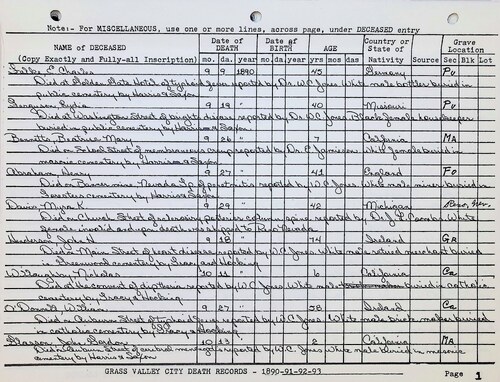 Note:- For MISCELLANEOUS, use one or more lines, across page, under DECEASED entry
NAME of DECEASED (Copy Exactly and Fully-all Inscription) Date of DEATH mo. da. year Date of BIRTH mo. da. year AGE yrs mos das Country or State of Nativity Source Grave Location Sec. Blk Lot
E Charles 9 9 1890 45 Germany Pu
Died at Golden Gate Hotel of typhoid fever reported by Dr. W.C. Jones White male bottler buried in
public cemetery by Harris & Sazon
Ferguson, Lydia 9 19 " 40 Missouri Pu
Died at Washington Street of brights disease reported by Dr. W.C. Jones Black female housekeeper
buried in public cemetery by Harris & Sazon
Bennetts, Beatrice Mary 9 26 " 7 California MA
Died on School Street of membraneous croup reported by Jamieson White female buried in
masonic cemetery by Harris & Sazon
Abraham, Henry 9 27 " 41 England Fo
Died on Banner mine Nevada of reported by W.C. Jones White male miner buried in
Foresters cemetery by Harris & Sazon
Davis, Myra K. 9 29 " 42 Michigan
Died on Church Street of posterior column spine reported by Dr J L Combs White
female invalid and upon death was shipped to
Henderson, John H 9 18 " 74 Ireland Ga
Died on Main Street of heart disease reported by W.C. Jones White male retired merchant buried
in Greenwood cemetery by
Willoughby, Nicholas 10 11 " 6 California Ca
Died at the convent of diptheria reported by W.C. Jones White male buried in catholic
cemetery by
O'Donnell, William 9 27 " 58 Ireland Ca
Died on Auburn Street of typhoid fever reported by W.C. Jones White male brick maker buried
in catholic cemetery by
Glasson, John Gordon 10 13 " 2 California MA
Died on Auburn Street of reported by W.C. Jones white male buried in masonic
cemetery by Harris & Sazon
GRASS VALLEY CITY DEATH RECORDS - 1890-91-92-93 Page 1